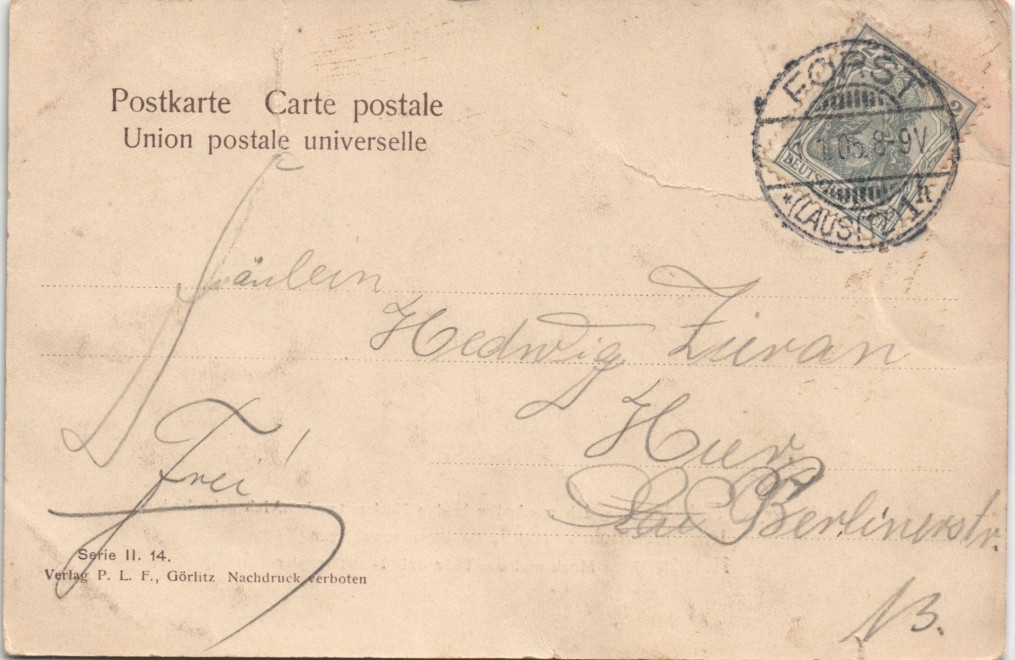 Postkarte Carte postale
Union postale universelle
FORST
1.05.8-9V.
*(LAUSITZ)1h
2 2
DEUTSCH
Fräulein
Hedwig Zuran
Hier.
Berlinerstr.
Frei!
Serie II. 14.
Verlag P. L. F., Görlitz Nachdruck verboten